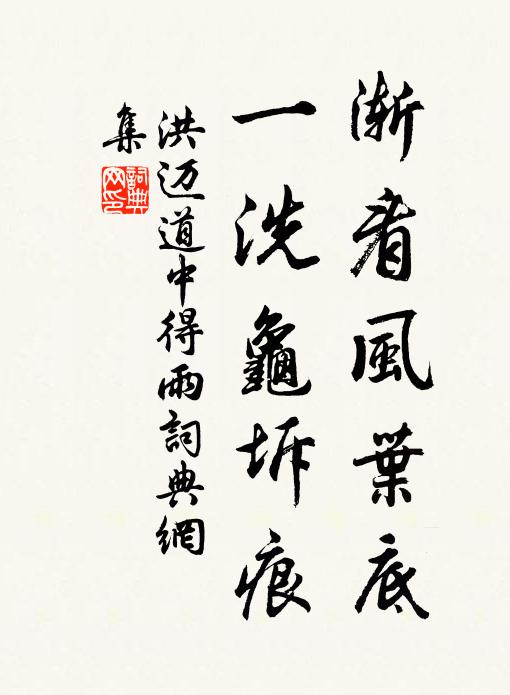 漸看風葉底
一洗龜坼痕
洪迈道中得雨詞典網
集
詞典网印